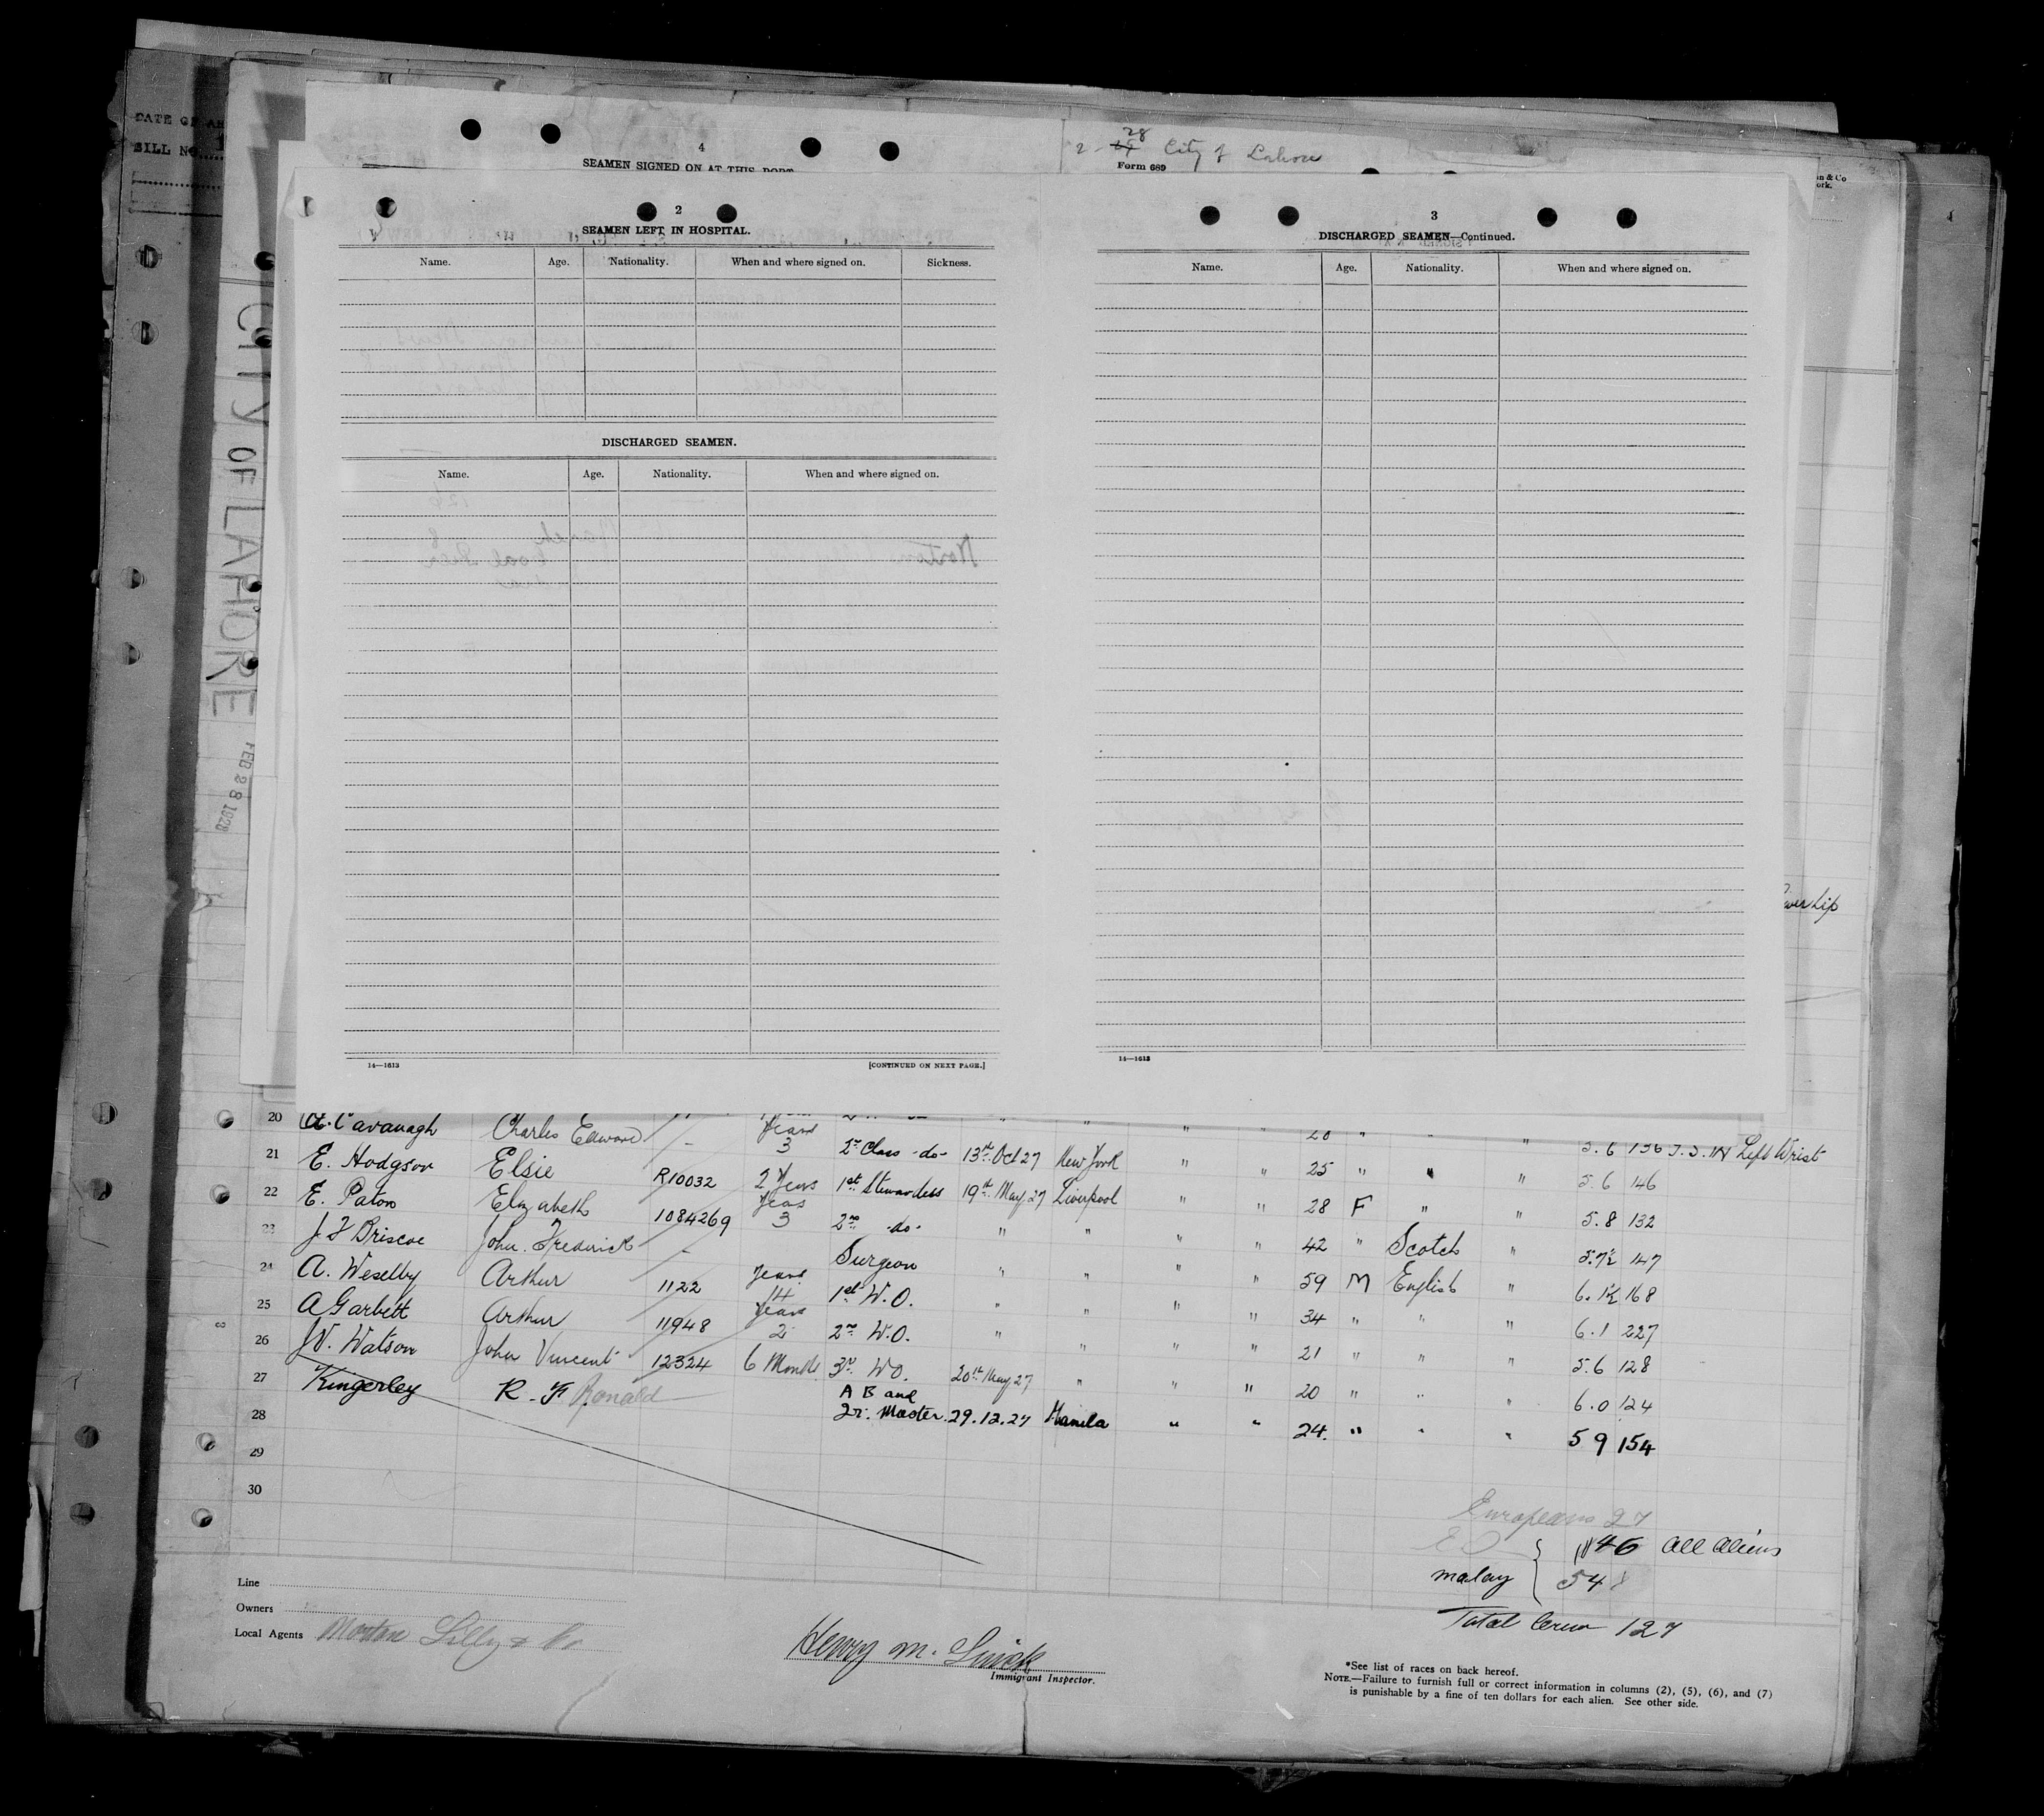 DATE OF AR
BILL NO. 1
4
SEAMEN SIGNED ON AT THIS PORT
2 - 28 City of Lahore
Form 689
CITY OF LAHORE
FEB 28 1928
2
SEAMEN LEFT IN HOSPITAL.
Name. Age. Nationality. When and where signed on. Sickness.
DISCHARGED SEAMEN.
Name. Age. Nationality. When and where signed on.
14—1613 [CONTINUED ON NEXT PAGE.]
3
DISCHARGED SEAMEN—Continued.
Name. Age. Nationality. When and where signed on.
14—1613
n & Co
ork.
Lip
20 A. Cavanagh Charles Edward - Years 3 2nd Class -do- 13th Oct 27 New York " " 25 " " " 5.6 136 Left Wrist
21 E. Hodgson Elsie R10032 2 Years 1st Stewardess 19th May 27 Liverpool " " 28 F " " 5.6 146
22 E. Paton Elizabeth 1084269 Years 3 2nd -do- " " " " 42 " Scotch " 5.8 132
23 J F Briscoe John Frederick - Surgeon " " " " 59 M English " 5.7½ 147
24 A. Weselby Arthur 1122 Years 14 1st W.O. " " " " 34 " " " 6.1½ 168
25 A Garbett Arthur 11948 Years 2 2nd W.O. " " " " 21 " " " 6.1 227
26 J.V. Watson John Vincent 12324 6 Months 3rd W.O. 20th May 27 " " " 20 " " " 5.6 128
27 Kingerley R. F Ronald A B and
2r. Master 29.12.27 Manila " " 24. " " " 6.0 124
28 5 9 154
29
30
Europeans 27
46 All Aliens
malay 54
Total Crew 127
Line
Owners
Local Agents Norton Lilly & Co
Henry M.
Immigrant Inspector.
*See list of races on back hereof.
NOTE.—Failure to furnish full or correct information in columns (2), (5), (6), and (7)
is punishable by a fine of ten dollars for each alien. See other side.